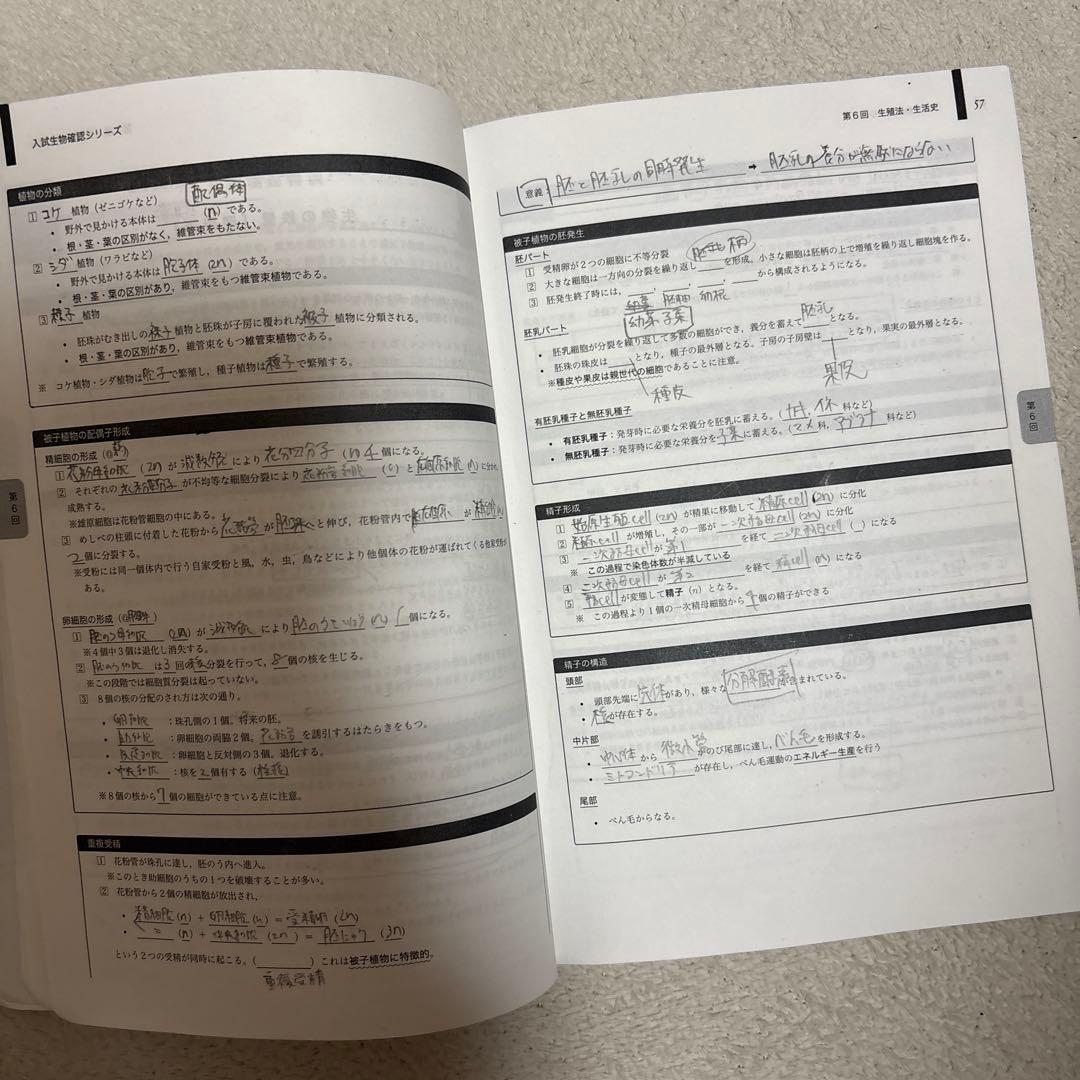 入試生物確認シリーズ
植物の分類
配偶体
① コケ 植物（ゼニゴケなど）
・ 野外で見かける本体は (n) である。
・ 根・茎・葉の区別がなく，維管束をもたない。
② シダ 植物（ワラビなど）
・ 野外で見かける本体は 胞子体 (2n) である。
・ 根・茎・葉の区別があり，維管束をもつ維管束植物である。
③ 種子 植物
胚珠がむき出しの 裸子 植物と胚珠が子房に覆われた 被子 植物に分類される。
・ 根・茎・葉の区別があり，維管束をもつ維管束植物である。
※ コケ植物・シダ植物は 胞子 で繁殖し，種子植物は 種子 で繁殖する。
被子植物の配偶子形成
精細胞の形成（@葯）
① 花粉母細胞 (2n) が 減数分裂 により 花粉四分子 (n) 4 個になる。
② それぞれの 花粉四分子 が不均等な細胞分裂により 花粉管細胞 (n) と 雄原細胞 (n) に分かれ
成熟する。
※雄原細胞は花粉管細胞の中にある。
③ めしべの柱頭に付着した花粉から 花粉管 が 胚珠 へと伸び，花粉管内で 雄原細胞 が 精細胞
2 個に分裂する。
※受粉には同一個体内で行う自家受粉と風，水，虫，鳥などにより他個体の花粉が運ばれてくる他家受粉が
ある。
卵細胞の形成（@胚珠）
① 胚のう母細胞 (2n) が 減数分裂 により 胚のう細胞 (n) 1 個になる。
※4個中3個は退化し消失する。
② 胚のう細胞 は 3 回の核分裂を行って，8 個の核を生じる。
※この段階では細胞質分裂は起こっていない。
③ 8個の核の分配のされ方は次の通り。
・ 卵細胞 ：珠孔側の1個。将来の胚。
・ 助細胞 ：卵細胞の両脇2個。花粉管 を誘引するはたらきをもつ。
・ 反足細胞 ：卵細胞と反対側の3個。退化する。
・ 中央細胞 ：核を 2 個有する（極核）
※8個の核から 7 個の細胞ができている点に注意。
重複受精
① 花粉管が珠孔に達し，胚のう内へ進入。
※このとき助細胞のうちの1つを破壊することが多い。
② 花粉管から2個の精細胞が放出され，
・ 精細胞 (n) + 卵細胞 (n) = 受精卵 (2n)
・ 〃 (n) + 中央細胞 (2n) = 胚にゅう (3n)
という2つの受精が同時に起こる。( ) これは被子植物に特徴的。
重複受精
第6回
第6回 生殖法・生活史
57
意義 胚と胚乳の同時発生 → 胚乳の養分が無駄にならない
被子植物の胚発生
胚パート
① 受精卵が2つの細胞に不等分裂
② 大きな細胞は一方向の分裂を繰り返し 胚柄 を形成，小さな細胞は胚柄の上で増殖を繰り返し細胞塊を作る。
③ 胚発生終了時には，　，　，　，　から構成されるようになる。
幼葉 胚軸 幼根
幼芽 子葉
胚乳パート
・ 胚乳細胞が分裂を繰り返して多数の細胞ができ，養分を蓄えて 胚乳 となる。
・ 胚珠の珠皮は となり，種子の最外層となる。子房の子房壁は となり，果実の最外層となる。
※種皮や果皮は親世代の細胞であることに注意。
種皮
果皮
有胚乳種子と無胚乳種子
・ 有胚乳種子：発芽時に必要な栄養分を胚乳に蓄える。( 科など)
・ 無胚乳種子：発芽時に必要な栄養分を 子葉 に蓄える。(マメ科，アブラナ 科など)
第6回
精子形成
① 始原生殖cell (2n) が精巣に移動して 精原cell (2n) に分化
② 精原cell が増殖し，その一部が 一次精母cell (2n) に分化
③ 一次精母cell が 第1 を経て 二次精母cell ( ) になる
※ この過程で染色体数が半減している
④ 二次精母cell が 第2 を経て 精cell (n) になる
⑤ 精cell が変態して精子（n）となる。
※ この過程より1個の一次精母細胞から 4 個の精子ができる
精子の構造
頭部
・ 頭部先端に 先体 があり，様々な 分解酵素 が含まれている。
・ 核 が存在する。
中片部
・ 中心体 から 微小管 がのび尾部に達し，べん毛 を形成する。
・ ミトコンドリア が存在し，べん毛運動のエネルギー生産を行う
尾部
・ べん毛からなる。